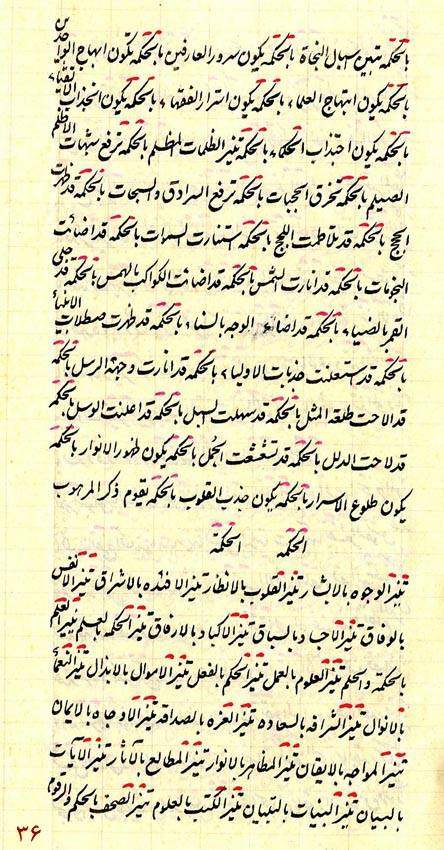 بالحکمه تبین اسبال النجاة بالحکمه یکون سرور العارفین بالحکمه یکون ابهاج الواجدین
بالحکمه یکون ابتهاج العلماء بالحکمه یکون استرار الفقهاء بالحکمه یکون انجذاب الاتقیاء
بالحکمه یکون اجتذاب الحکماء بالحکمه تنیر الظلمات المظلم بالحکمه ترفع شبهات الاظلم
الصیلم بالحکمه تخرق الحجبات بالحکمه ترفع السرادق والسبحات بالحکمه قد ظهرت
الحجج بالحکمه قد تلاطمت اللجج بالحکمه استنارت السموات بالحکمه قد اضائت
النجومات بالحکمه قد انارت الشمس بالحکمه قد اضائت الکواکب بالهمس بالحکمه قد جلی
القمر بالضیاء بالحکمه قد اضاء الوجه بالسناء بالحکمه قد ظهرت الانبیاء
بالحکمه قد ستعلنت جذبات الاولیاء بالحکمه قد انارت وجهة الرسل بالحکمه
قد الاحت طلعة المثل بالحکمه قد سهلت السبل بالحکمه قد اعلنت الوسل بالحکمه
قد لاحت الدلل بالحکمه قد تشعشعت الجمل بالحکمه یکون ظهور الانوار بالحکمه
یکون طلوع الاسرار بالحکمه یکون جذب القلوب بالحکمه یقوم ذکر المرهوب
الحکمه الحکمة
تنیر الوجوه بالابشار تنیر القلوب بالانظار تنیر الافئده بالاشراق تنیر الانفس
بالوفاق تنیر الاجساد بالسباق تنیر الاکباد بالارفاق تنیر الحکمه بالعلم تنیر العلم
بالحکمة والحلم تنیر العلوم بالعمل تنیر الحکم بالفعل تنیر الاموال بالابذال تنیر النعماء
بالانوال تنیر الشرافه بالسعاده تنیر العزه بالصداقه تنیر الاوجاه بالایمان
تنیر المواجه بالایقان تنیر المظاهر بالانوار تنیر المطالع بالآثار تنیر الآیات
بالبیان تنیر البینات بالتبیان تنیر الکتب بالعلوم تنیر الصحف بالحکم والرقوم
۳۶